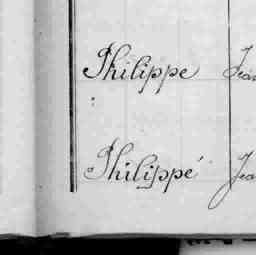 Philippe Jea
Philippé Jea